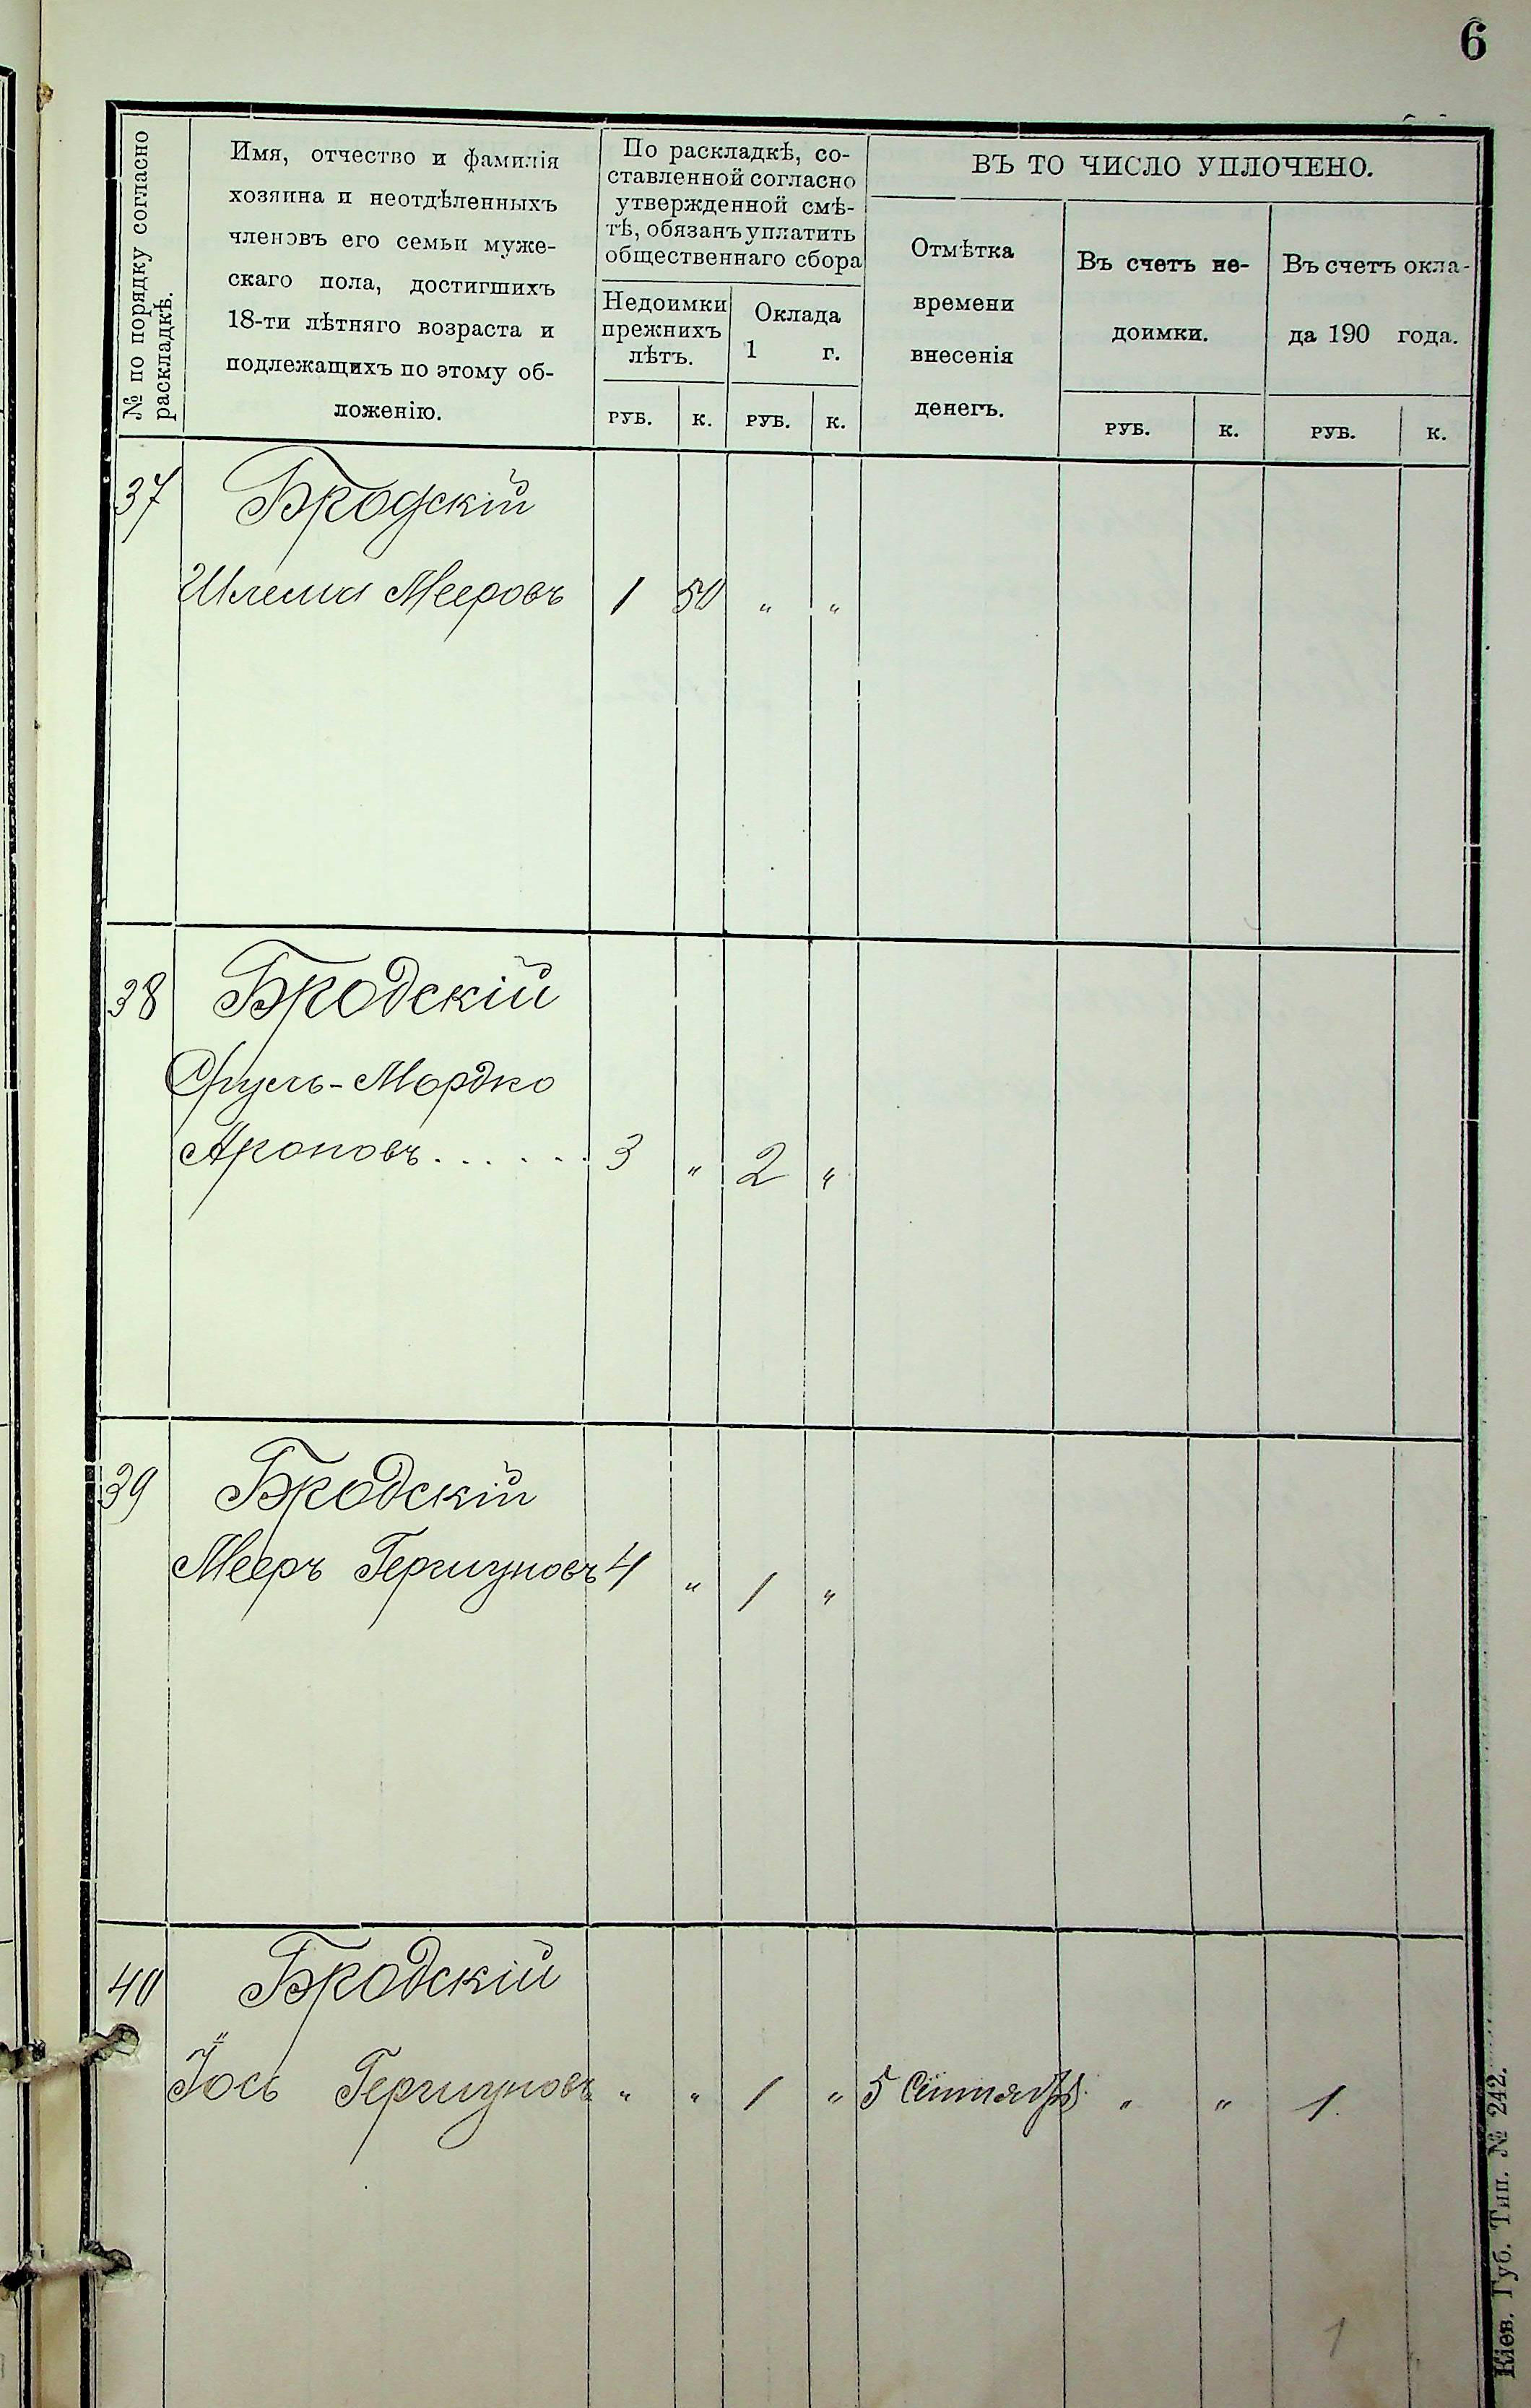 6
№ по порядку согласно
раскладкѣ.
Имя, отчество и фамилія
хозяина и неотдѣленныхъ
членовъ его семьи муже-
скаго пола, достигшихъ
18-ти лѣтняго возраста и
подлежащихъ по этому об-
ложенію.
По раскладкѣ, со-
ставленной согласно
утвержденной смѣ-
тѣ, обязанъ уплатить
общественнаго сбора
Недоимки
прежнихъ
лѣтъ.
Оклада
1 г.
ВЪ ТО ЧИСЛО УПЛОЧЕНО.
Отмѣтка
времени
внесенія
денегъ.
Въ счетъ не-
доимки.
Въ счетъ окла-
да 190 года.
РУБ. К. РУБ. К. РУБ. К. РУБ. К.
37 Бродскій
Шлема Мееровъ 1 50 " "
38 Бродскій
Сруль-Мордко
Ароновъ . . . . . . 3 " 2 "
39 Бродскій
Мееръ Гершуновъ 4 " 1 "
40 Бродскій
Іось Гершуновъ " " 1 " 5 Сентября " " 1
1
Кіев. Губ. Тип. № 242.